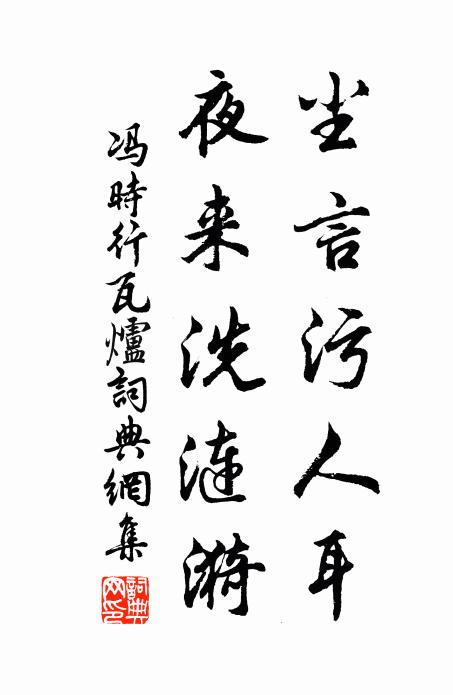 尘言污人耳
夜来洗漣漪
冯時行瓦爐詞典網集
詞典
网印